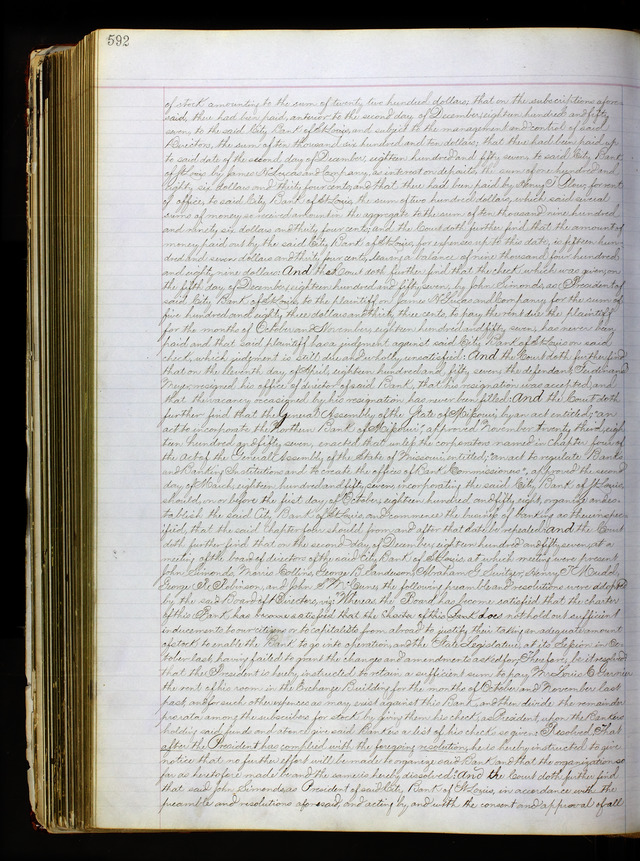 592
of stock amounting to the sum of twenty two hundred dollars, that on the subscriptions afore-
said there had been paid, anterior to the second day of December, eighteen hundred and fifty
seven, to the said City Bank of St Louis, and subject to the management and control of said
Directors, the sum of ten thousand six hundred and ten dollars; that there had been paid up
to said date of the second day of December, eighteen hundred and fifty seven, to said City Bank
of St Louis by James H Lucas and Company, as interest on deposits, the sum of one hundred and
eighty six dollars and thirty four cents, and that there had been paid by Henry T for rent
of office, to said City Bank of St Louis, the sum of two hundred dollars, which said several
sums of money so received amount in the aggregate to the sum of ten thousand nine hundred
and ninety six dollars and thirty four cents; and the Court doth further find that the amount of
money paid out by the said City Bank of St Louis, for expenses up to this date, is fifteen hun-
dred and seven dollars and thirty four cents, leaving a balance of nine thousand four hundred
and eighty nine dollars. And the Court doth further find that the check which was given on
the fifth day of December, eighteen hundred and fifty seven, by John Simonds, as President of
said City Bank of St Louis, to the plaintiff on James H Lucas and Company for the sum of
five hundred and eighty three dollars and thirty three cents, to pay the rent due the plaintiff
for the months of October and November, eighteen hundred and fifty seven, has never been
paid and that said plaintiff has a judgment against said City Bank of St Louis on said
check, which judgment is still due and wholly unsatisfied. And the Court doth further find
that on the eleventh day of April, eighteen hundred and fifty seven the defendant, Ferdinand
Meyer, resigned his office of director of said Bank, that his resignation was accepted, and
that the vacancy occasioned by his resignation has never been filled. And the Court doth
further find that the General Assembly of the State of Missouri, by an act entitled, "an
act to incorporate the Northern Bank of Missouri", approved November twenty third, eigh-
teen hundred and fifty seven, enacted that unless the corporators named in chapter four of
the Act of the General Assembly of the State of Missouri entitled, "an act to regulate Banks
and Banking Institutions and to create the offices of Bank Commissioners", approved the second
day of March, eighteen hundred and fifty seven, incorporating the said City Bank of St Louis,
should, on or before the first day of October, eighteen hundred and fifty eight, organize and es-
tablish the said City Bank of St Louis and commence the business of banking as therein spec-
ified, that the said Chapter four should from and after that date be repealed; and the Court
doth further find that on the second day of December, eighteen hundred and fifty seven, at a
meeting of the board of directors of the said City Bank of St Louis, at which meeting were present
John Simonds, Morris Collins, George R. Sanderson, Abraham G. Switzer, Henry T.
George R. Robinson, and John S. Mc the following preamble and resolutions were adopted
by the said Board of Directors, viz: Whereas the Board has become satisfied that the charter
of this Bank has become satisfied that the Charter of this Bank does not hold out sufficient
inducements to our citizens or to capitalists from abroad to justify their taking an adequate amount
of stock to enable the Bank to go into operation, and the State Legislature, at its Session in Oc-
tober last having failed to grant the change and amendments asked for, Therefore, be it resolved
that the President is hereby instructed to retain a sufficient sum to pay Mr Louis C. Garnier
the rent of his room in the Exchange Building for the months of October and November last
past, and for such other expenses as may exist against this Bank, and then divide the remainder
pro rata among the subscribers for stock by giving them his check, as President, upon the Bankers
holding said fund and also to give said Bankers a list of his checks so given. Resolved, That
after the President has complied with the foregoing resolution, he is hereby instructed to give
notice that no further effort will be made to organize said Bank and that the organization so
far as heretofore made be and the same is hereby dissolved. And the Court doth further find
that said John Simonds, as President of said City Bank of St Louis, in accordance with the
preamble and resolutions aforesaid, and acting by and with the consent and approval of all